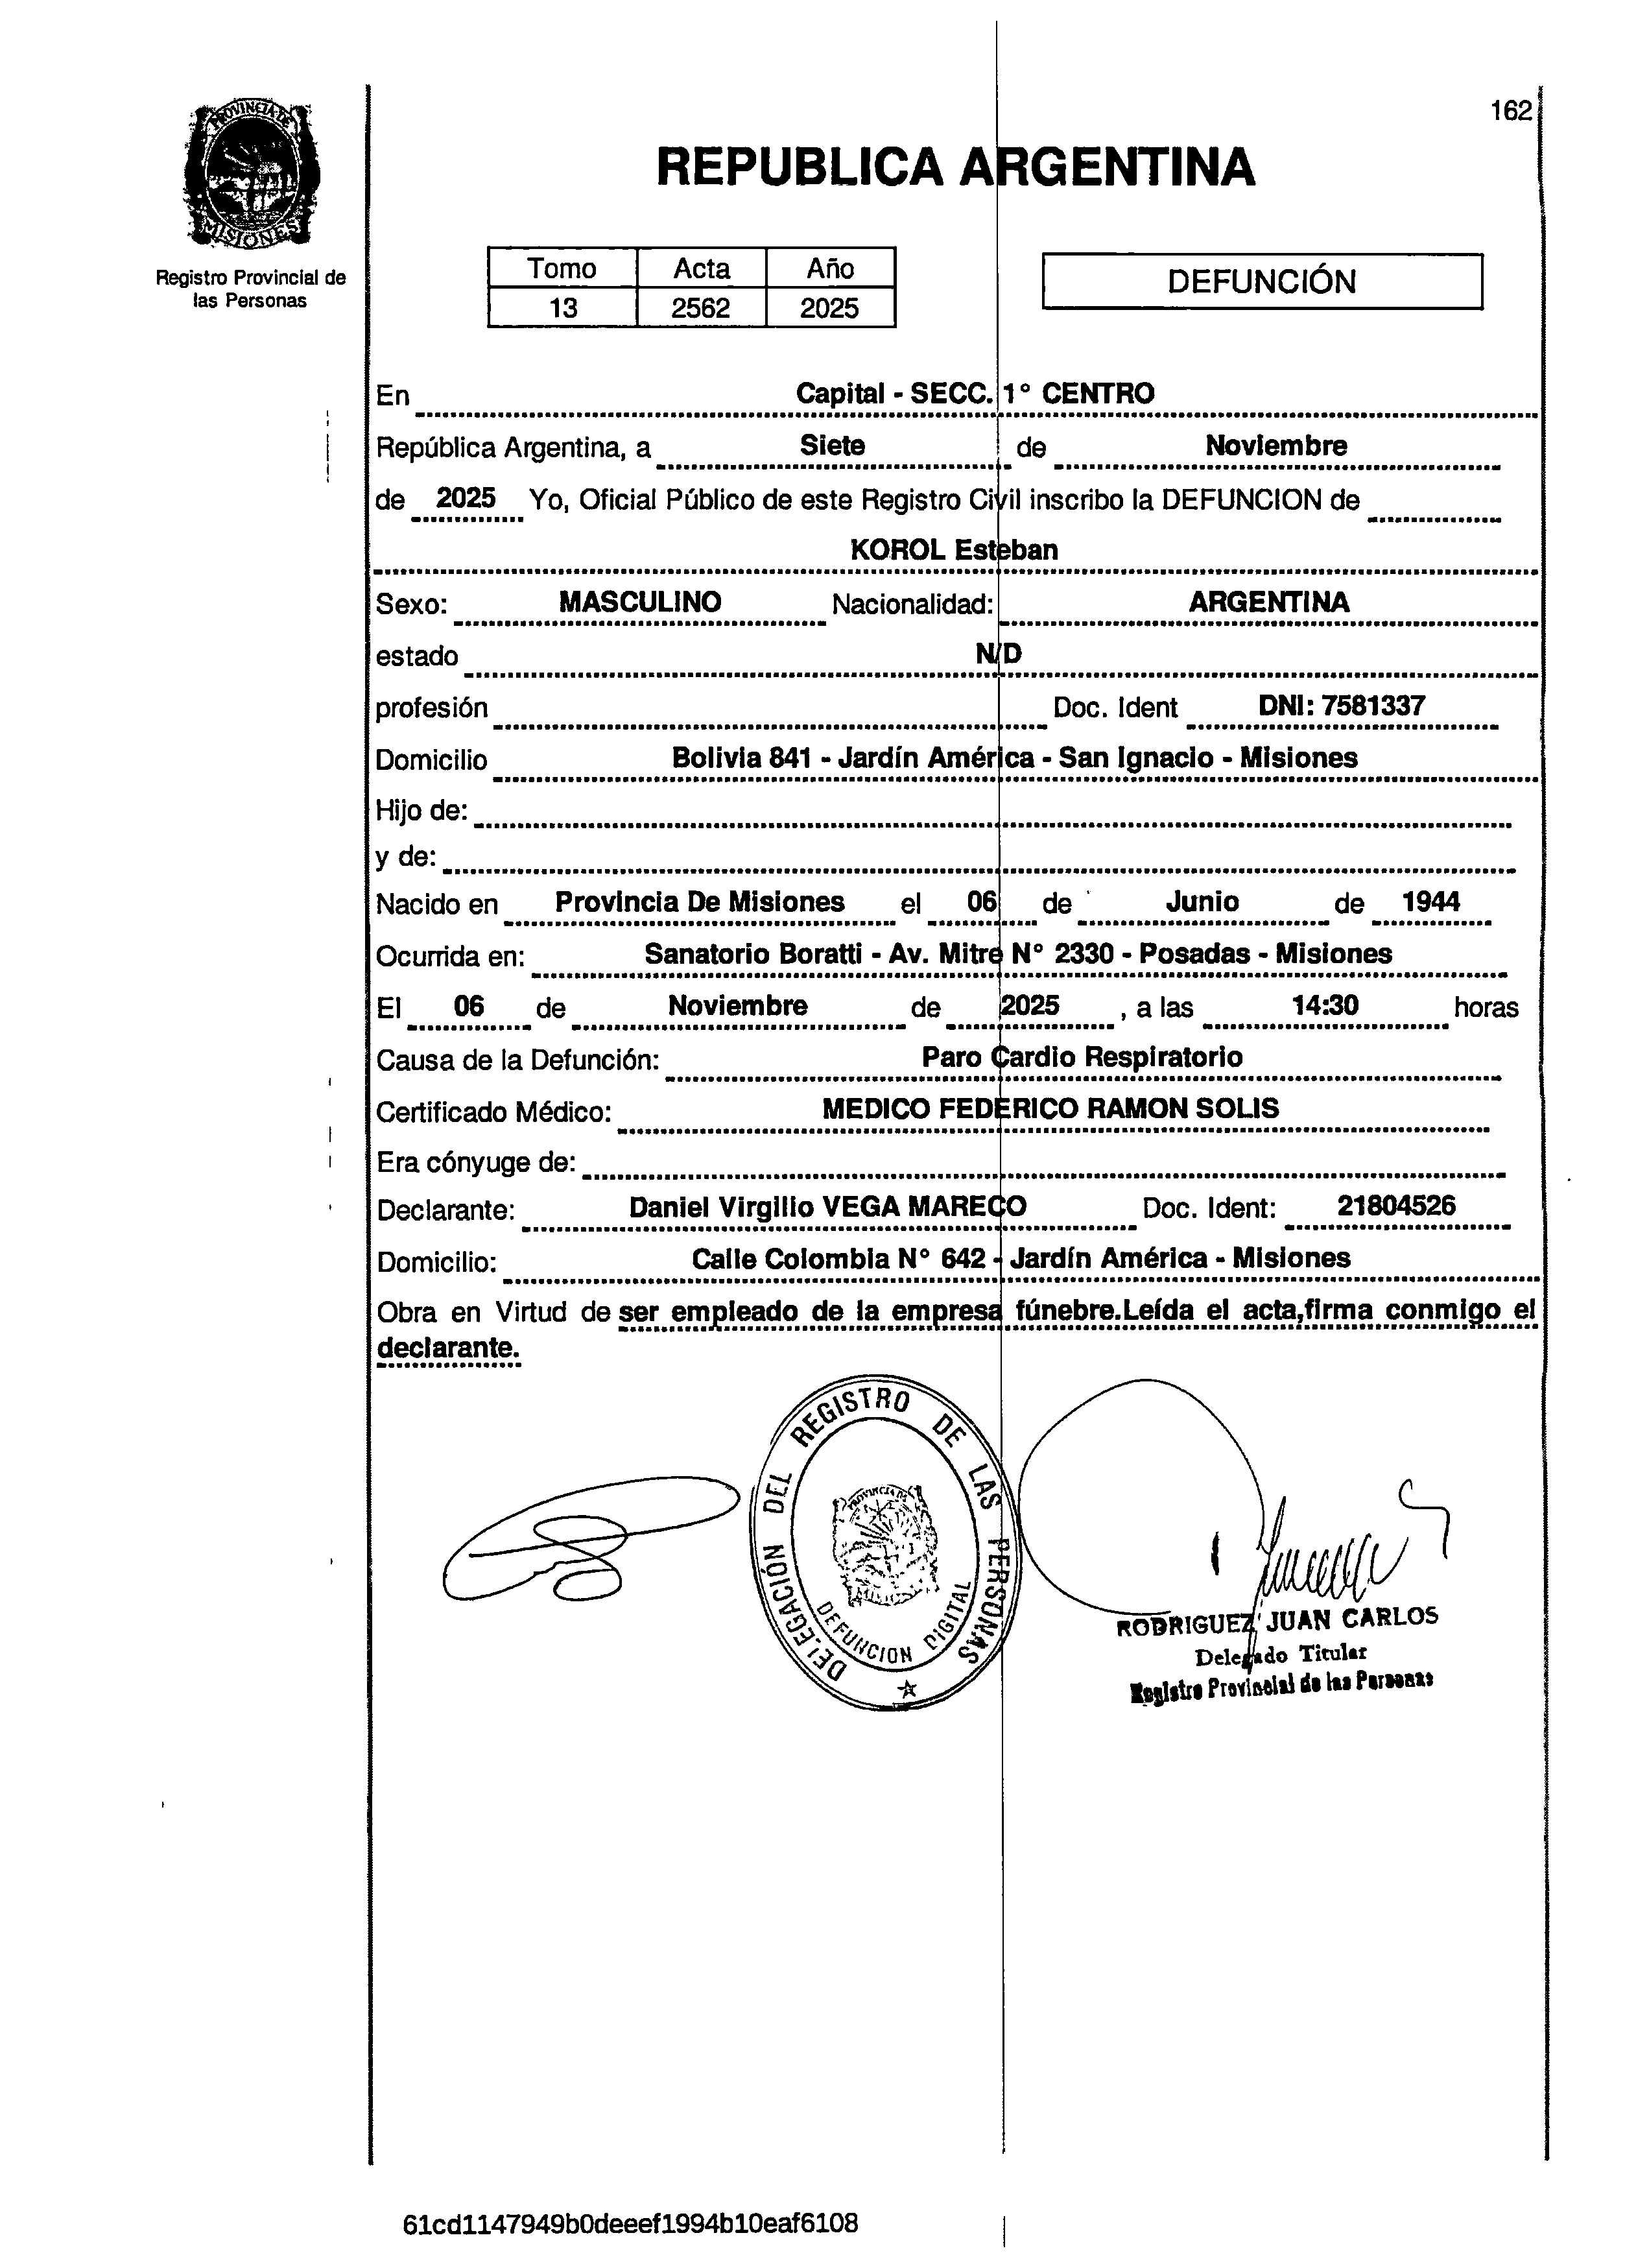 162
PROVINCIA DE
MISIONES
Registro Provincial de
las Personas
REPUBLICA ARGENTINA
Tomo Acta Año
13 2562 2025
DEFUNCIÓN
En Capital - SECC. 1° CENTRO
República Argentina, a Siete de Noviembre
de 2025 Yo, Oficial Público de este Registro Civil inscribo la DEFUNCION de
KOROL Esteban
Sexo: MASCULINO Nacionalidad: ARGENTINA
estado N/D
profesión Doc. Ident DNI: 7581337
Domicilio Bolivia 841 - Jardín América - San Ignacio - Misiones
Hijo de:
y de:
Nacido en Provincia De Misiones el 06 de Junio de 1944
Ocurrida en: Sanatorio Boratti - Av. Mitre N° 2330 - Posadas - Misiones
El 06 de Noviembre de 2025 , a las 14:30 horas
Causa de la Defunción: Paro Cardio Respiratorio
Certificado Médico: MEDICO FEDERICO RAMON SOLIS
Era cónyuge de:
Declarante: Daniel Virgilio VEGA MARECO Doc. Ident: 21804526
Domicilio: Calle Colombia N° 642 - Jardín América - Misiones
Obra en Virtud de ser empleado de la empresa fúnebre.Leída el acta,firma conmigo el
declarante.
DELEGACIÓN DEL REGISTRO DE LAS PERSONAS
PROVINCIA DE
MISIONES
DEFUNCION DIGITAL
RODRIGUEZ JUAN CARLOS
Delegado Titular
Registro Provincial de las Personas
61cd1147949b0deeef1994b10eaf6108